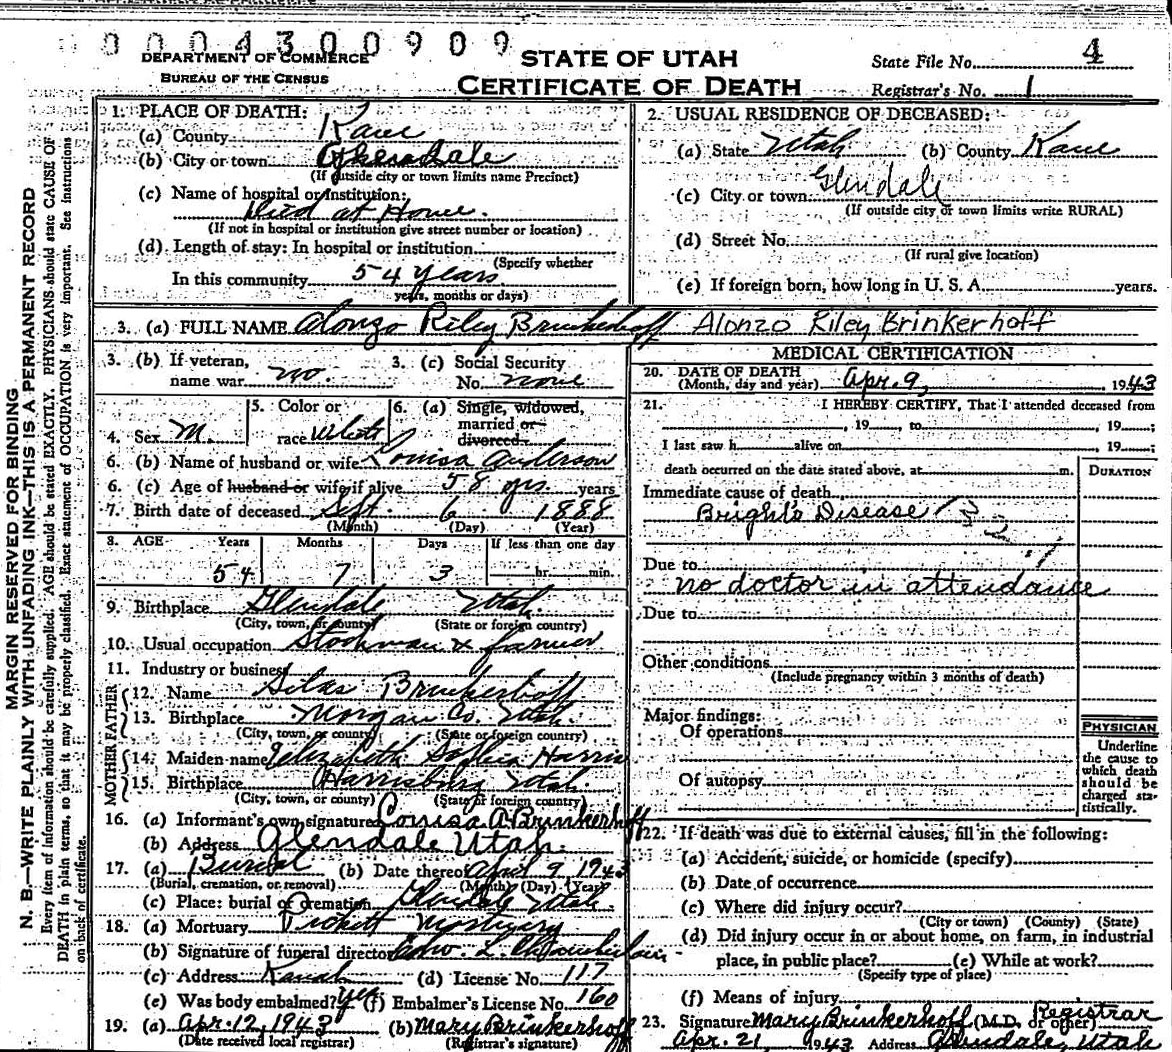 0004300909
DEPARTMENT OF COMMERCE
BUREAU OF THE CENSUS
STATE OF UTAH
CERTIFICATE OF DEATH
State File No. 4
Registrar's No. 1
MARGIN RESERVED FOR BINDING
N. B.—WRITE PLAINLY WITH UNFADING INK—THIS IS A PERMANENT RECORD
Every item of information should be carefully supplied. AGE should be stated EXACTLY. PHYSICIANS should state CAUSE OF
DEATH in plain terms, so that it may be properly classified. Exact statement of OCCUPATION is very important. See instructions
on back of certificate.
1. PLACE OF DEATH:
(a) County Kane
(b) City or town Glendale
(If outside city or town limits name Precinct)
(c) Name of hospital or institution:
Died at Home.
(If not in hospital or institution give street number or location)
(d) Length of stay: In hospital or institution
(Specify whether
In this community 54 years
years, months or days)
2. USUAL RESIDENCE OF DECEASED:
(a) State Utah (b) County Kane
(c) City or town Glendale
(If outside city or town limits write RURAL)
(d) Street No.
(If rural give location)
(e) If foreign born, how long in U. S. A. years.
3. (a) FULL NAME Alonzo Riley Brinkerhoff Alonzo Riley Brinkerhoff
3. (b) If veteran, name war no.
3. (c) Social Security No. none
4. Sex M.
5. Color or race White
6. (a) Single, widowed, married or divorced
6. (b) Name of husband or wife Louisa Anderson
6. (c) Age of husband or wife if alive 58 yrs. years
7. Birth date of deceased Sept. 6 1888
(Month) (Day) (Year)
8. AGE Years Months Days If less than one day
54 7 3 hr. min.
9. Birthplace Glendale Utah.
(City, town, or county) (State or foreign country)
10. Usual occupation Stockman & farmer
11. Industry or business
FATHER
12. Name Silas Brinkerhoff
13. Birthplace Morgan Co. Utah.
(City, town, or county) (State or foreign country)
MOTHER
14. Maiden name Elizabeth Sophia Harris
15. Birthplace Harrisburg Utah
(City, town, or county) (State or foreign country)
16. (a) Informant's own signature Louisa A Brinkerhoff
(b) Address Glendale Utah.
17. (a) Burial (b) Date thereof April 9 1943
(Burial, cremation, or removal) (Month) (Day) (Year)
(c) Place: burial or cremation Glendale Utah.
18. (a) Mortuary Mortuary
(b) Signature of funeral director L. Chamberlain
(c) Address Kanab (d) License No. 117
(e) Was body embalmed? yes (f) Embalmer's License No. 160
19. (a) Apr. 12, 1943 (b) Mary Brinkerhoff
(Date received local registrar) (Registrar's signature)
MEDICAL CERTIFICATION
20. DATE OF DEATH
(Month, day and year) Apr. 9, 1943
21. I HEREBY CERTIFY, That I attended deceased from
, 19 , to , 19 ;
I last saw h alive on , 19 ;
death occurred on the date stated above, at m. DURATION
Immediate cause of death
Bright's Disease
Due to
no doctor in attendance
Due to
Other conditions
(Include pregnancy within 3 months of death)
Major findings:
Of operations
Of autopsy
PHYSICIAN
Underline
the cause to
which death
should be
charged sta-
tistically.
22. If death was due to external causes, fill in the following:
(a) Accident, suicide, or homicide (specify)
(b) Date of occurrence
(c) Where did injury occur?
(City or town) (County) (State)
(d) Did injury occur in or about home, on farm, in industrial
place, in public place? (e) While at work?
(Specify type of place)
(f) Means of injury Registrar
23. Signature Mary Brinkerhoff (M.D. or other)
Apr. 21, 1943 Address Glendale, Utah